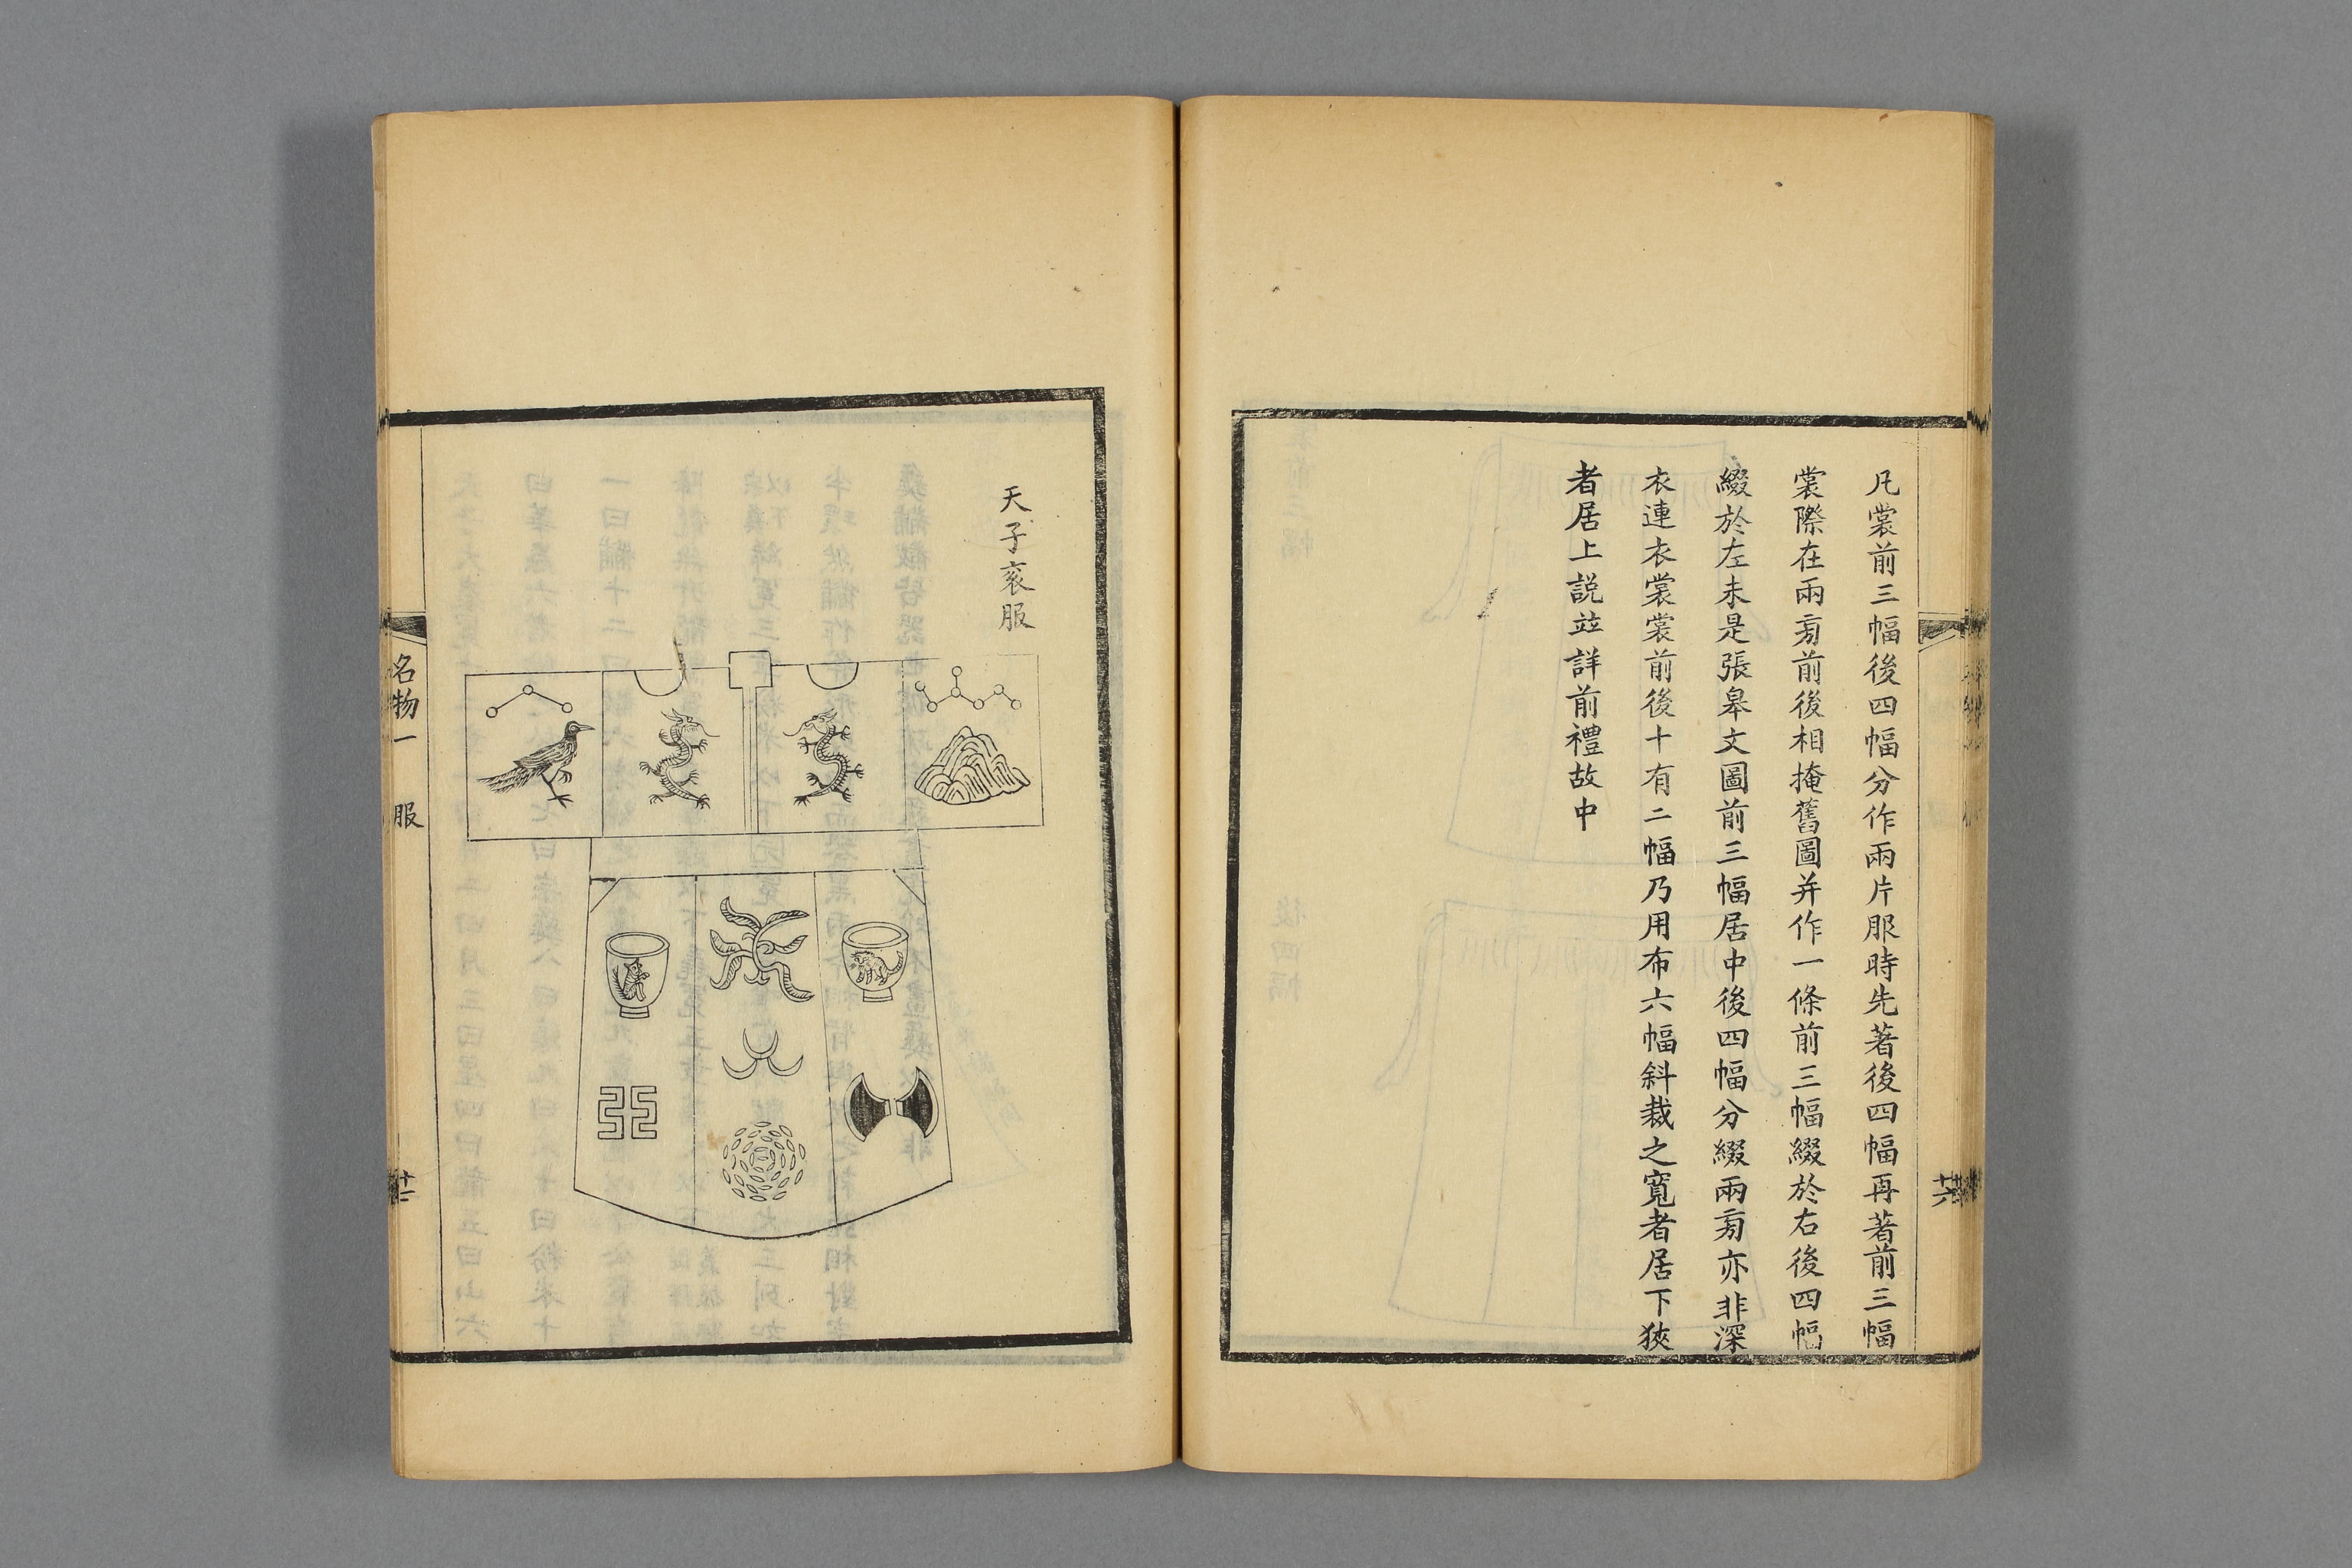 凡裳前三幅後四幅分作兩片服時先著後四幅再著前三幅
裳際在兩旁前後相掩舊圖并作一條前三幅綴於右後四幅
綴於左未是張皋文圖前三幅居中後四幅分綴兩旁亦非深
衣連衣裳裳前後十有二幅乃用布六幅斜裁之寬者居下狹
者居上説竝詳前禮故中
天子衮服
名物一 服